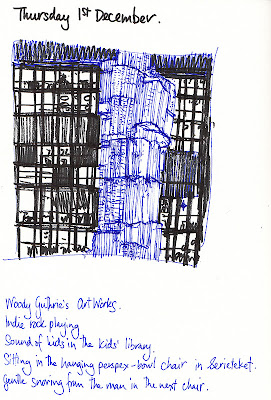 Thursday 1st December.
Woody Guthrie's Art Works.
Indie rock playing
Sound of kids in the kids' library
Sitting in the hanging perspex-bowl chair in Serieteket.
Gentle snoring from the man in the next chair.